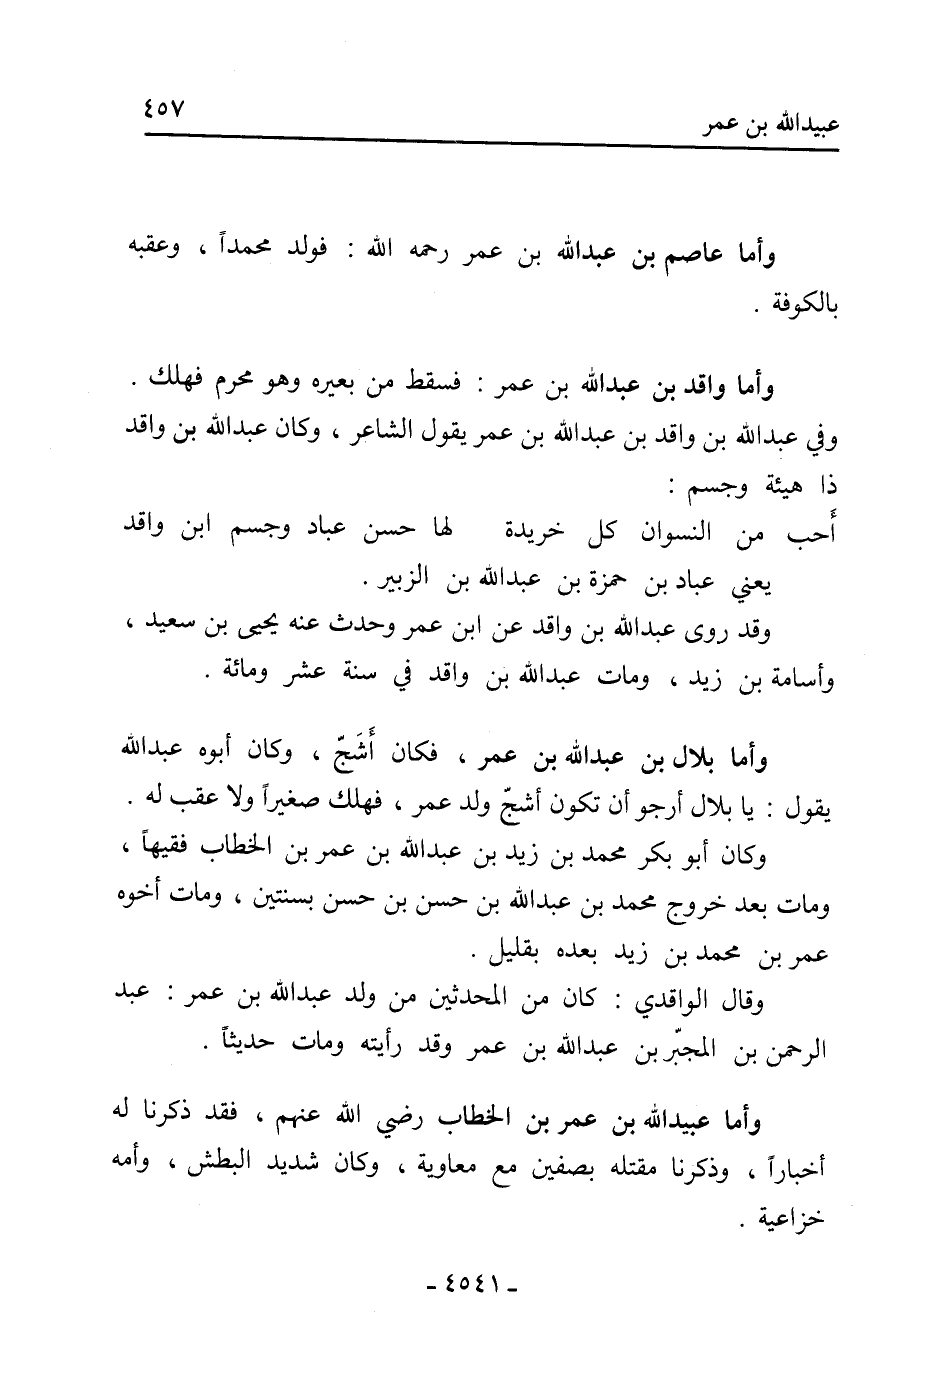 عبيدالله بن عمر ٤٥٧
وأما عاصم بن عبدالله بن عمر رحمه الله : فولد محمداً ، وعقبه
بالكوفة .
وأما واقد بن عبدالله بن عمر : فسقط من بعيره وهو محرم فهلك .
وفي عبدالله بن واقد بن عبدالله بن عمر يقول الشاعر ، وكان عبدالله بن واقد
ذا هيئة وجسم :
أَحب من النسوان كل خريدة لها حسن عباد وجسم ابن واقد
يعني عباد بن حمزة بن عبدالله بن الزبير .
وقد روى عبدالله بن واقد عن ابن عمر وحدث عنه يحيى بن سعيد ،
وأسامة بن زيد ، ومات عبدالله بن واقد في سنة عشر ومائة .
وأما بلال بن عبدالله بن عمر ، فكان أَشَجّ ، وكان أبوه عبدالله
يقول : يا بلال أرجو أن تكون أشجّ ولد عمر ، فهلك صغيراً ولا عقب له .
وكان أبو بكر محمد بن زيد بن عبدالله بن عمر بن الخطاب فقيهاً ،
ومات بعد خروج محمد بن عبدالله بن حسن بن حسن بسنتين ، ومات أخوه
عمر بن محمد بن زيد بعده بقليل .
وقال الواقدي : كان من المحدثين من ولد عبدالله بن عمر : عبد
الرحمن بن المجبّر بن عبدالله بن عمر وقد رأيته ومات حديثاً .
وأما عبيدالله بن عمر بن الخطاب رضي الله عنهم ، فقد ذكرنا له
أخباراً ، وذكرنا مقتله بصفين مع معاوية ، وكان شديد البطش ، وأمه
خزاعية .
- ٤٥٤١ -